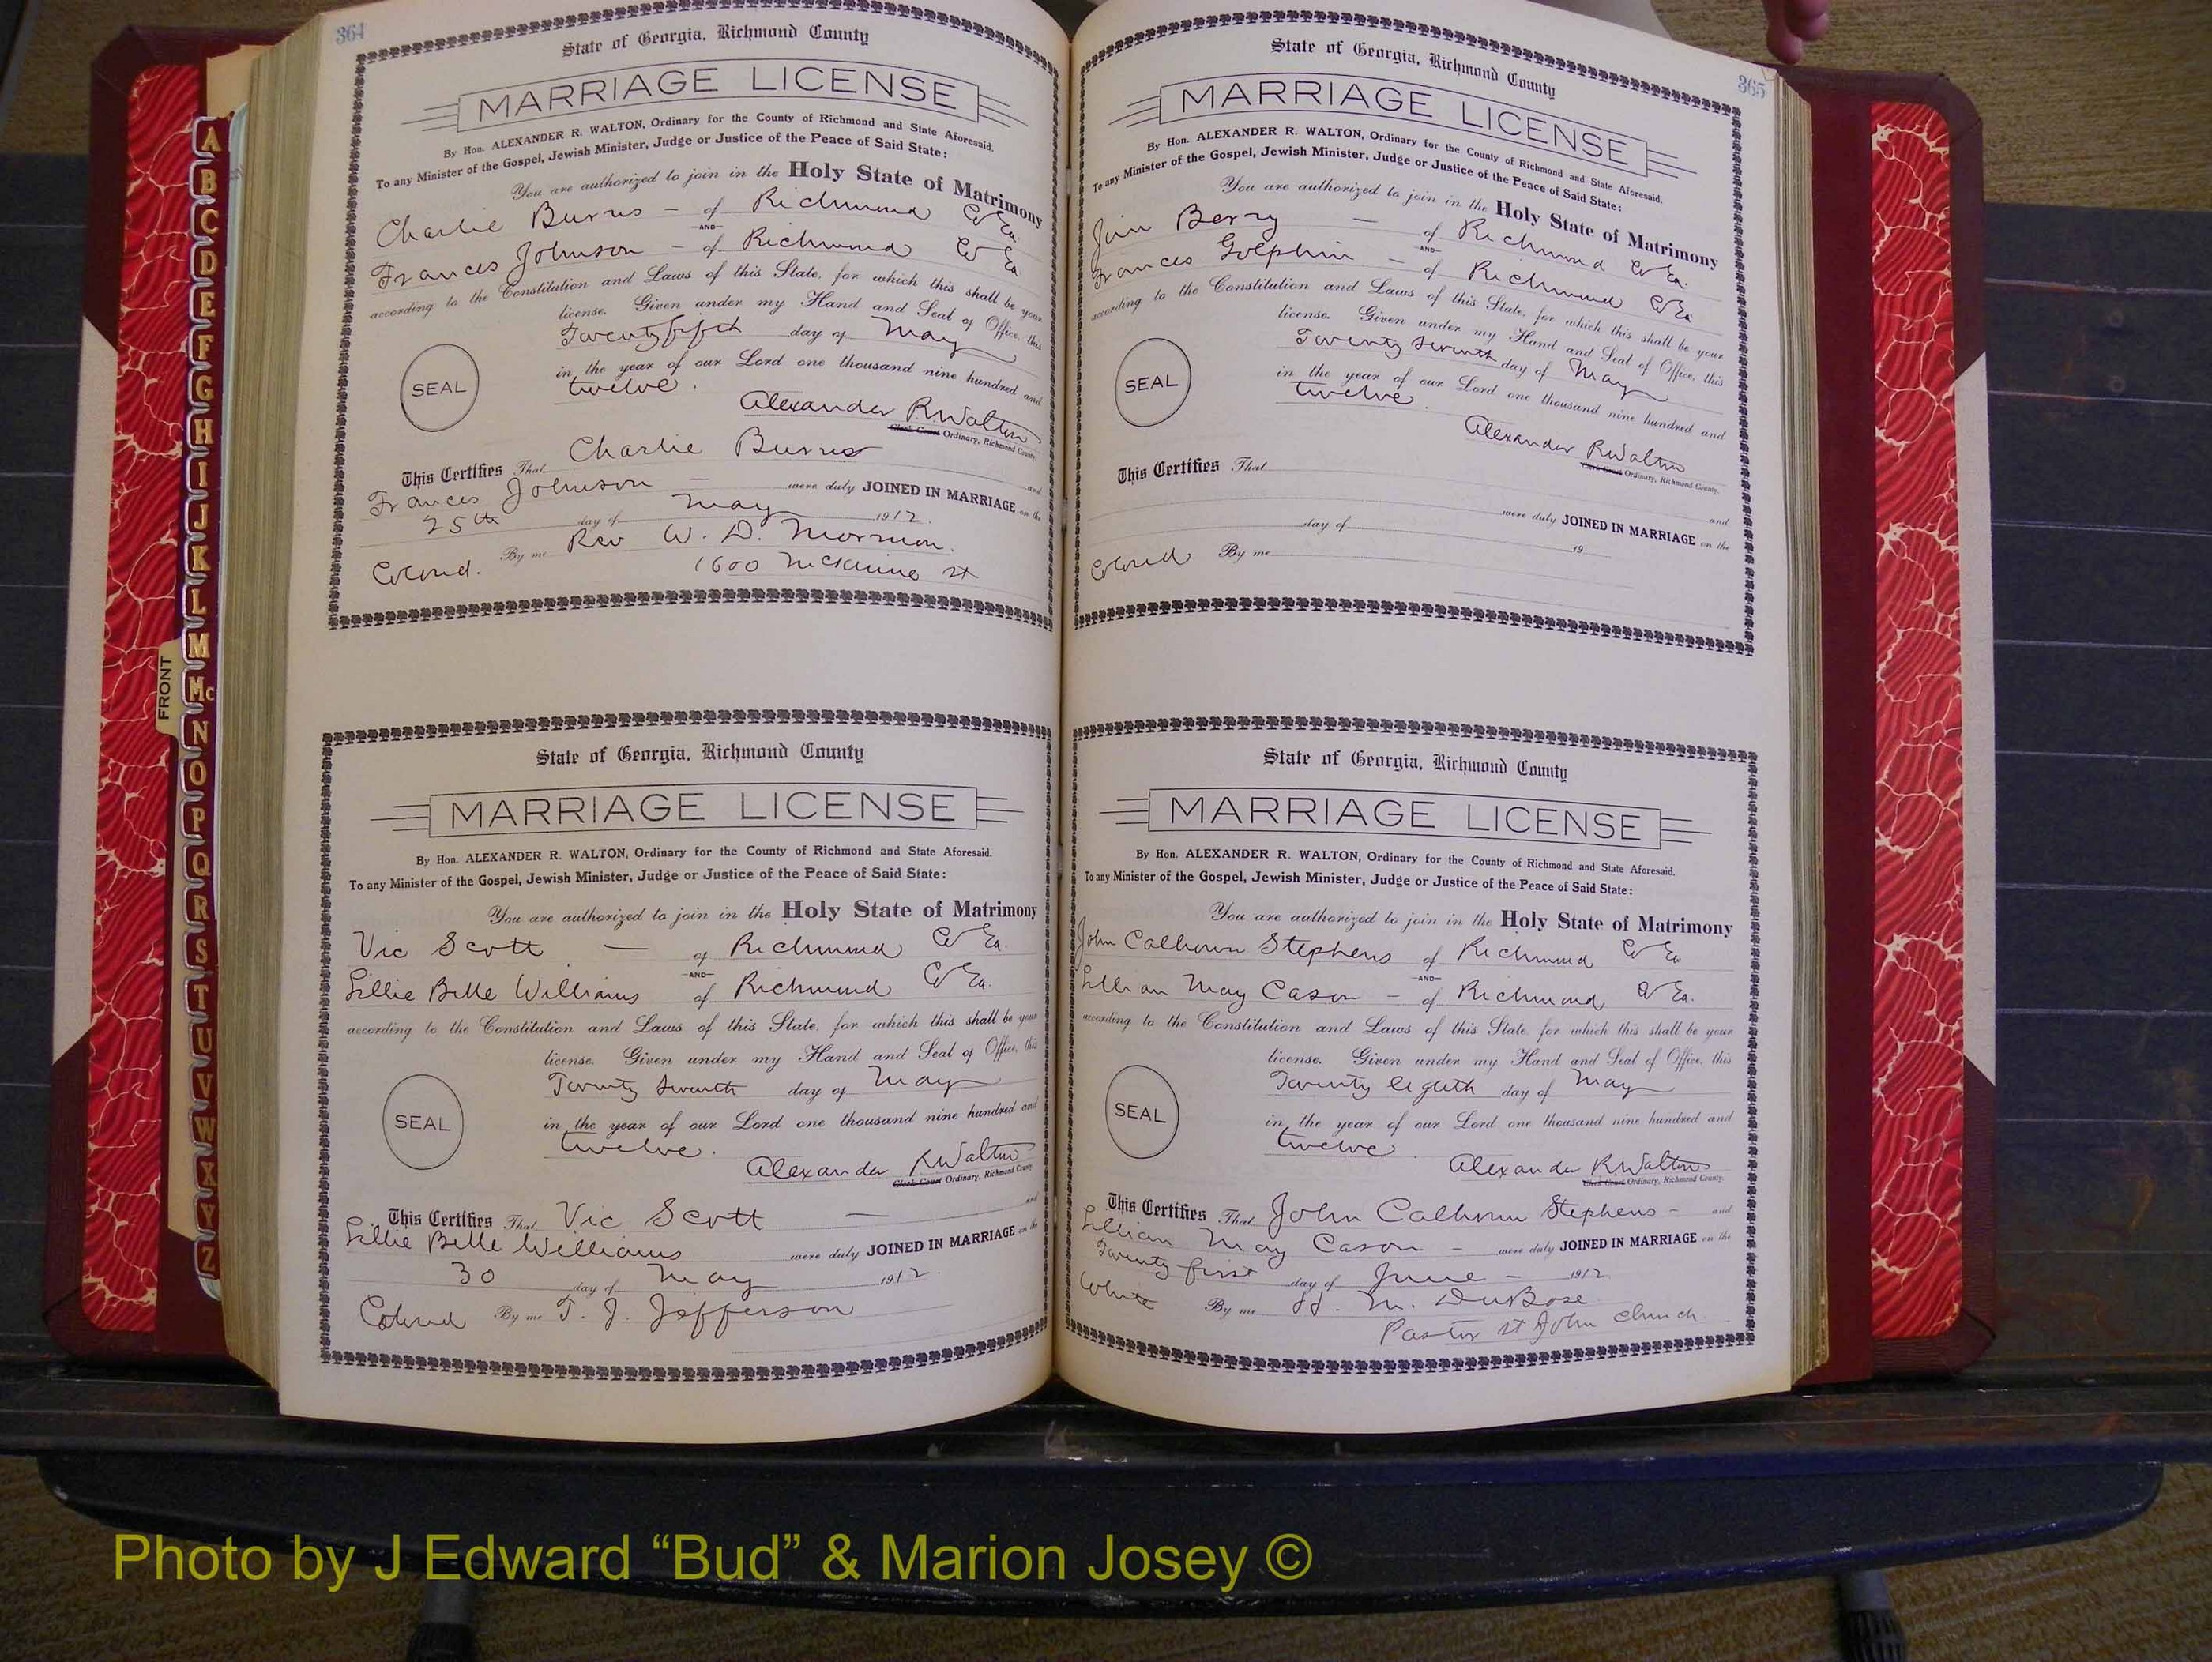 364
State of Georgia, Richmond County
MARRIAGE LICENSE
By Hon. ALEXANDER R. WALTON, Ordinary for the County of Richmond and State Aforesaid.
To any Minister of the Gospel, Jewish Minister, Judge or Justice of the Peace of Said State:
You are authorized to join in the Holy State of Matrimony
Charlie Burns - of Richmond Co Ga.
AND
Frances Johnson - of Richmond Co Ga
according to the Constitution and Laws of this State, for which this shall be your
license. Given under my Hand and Seal of Office, this
Twenty fifth day of May
in the year of our Lord one thousand nine hundred and
twelve.
SEAL
Alexander R Walton
Clerk Court Ordinary, Richmond County
This Certifies That Charlie Burns and
Frances Johnson - were duly JOINED IN MARRIAGE on the
25th day of May 1912.
By me Rev W. D. Morrison.
Colored. 1600 McKinnie st
State of Georgia, Richmond County
MARRIAGE LICENSE
By Hon. ALEXANDER R. WALTON, Ordinary for the County of Richmond and State Aforesaid.
To any Minister of the Gospel, Jewish Minister, Judge or Justice of the Peace of Said State:
You are authorized to join in the Holy State of Matrimony
Vic Scott - of Richmond Co Ga.
AND
Lillie Belle Williams of Richmond Co Ga.
according to the Constitution and Laws of this State, for which this shall be your
license. Given under my Hand and Seal of Office, this
Twenty Seventh day of May
in the year of our Lord one thousand nine hundred and
twelve.
SEAL
Alexander R Walton
Clerk Court Ordinary, Richmond County
This Certifies That Vic Scott - and
Lillie Belle Williams were duly JOINED IN MARRIAGE on the
30 day of May 1912.
Colored By me T. J. Jefferson
365
State of Georgia, Richmond County
MARRIAGE LICENSE
By Hon. ALEXANDER R. WALTON, Ordinary for the County of Richmond and State Aforesaid.
To any Minister of the Gospel, Jewish Minister, Judge or Justice of the Peace of Said State:
You are authorized to join in the Holy State of Matrimony
Jim Berry - of Richmond Co Ga.
AND
Frances Golphin - of Richmond Co Ga
according to the Constitution and Laws of this State, for which this shall be your
license. Given under my Hand and Seal of Office, this
Twenty Seventh day of May
in the year of our Lord one thousand nine hundred and
twelve.
SEAL
Alexander R Walton
Clerk Court Ordinary, Richmond County.
This Certifies That
and
were duly JOINED IN MARRIAGE on the
day of 19
Colored By me
State of Georgia, Richmond County
MARRIAGE LICENSE
By Hon. ALEXANDER R. WALTON, Ordinary for the County of Richmond and State Aforesaid.
To any Minister of the Gospel, Jewish Minister, Judge or Justice of the Peace of Said State:
You are authorized to join in the Holy State of Matrimony
John Calhoun Stephens of Richmond Co Ga
AND
Lillian May Cason - of Richmond Co Ga.
according to the Constitution and Laws of this State, for which this shall be your
license. Given under my Hand and Seal of Office, this
Twenty eighth day of May
in the year of our Lord one thousand nine hundred and
twelve.
SEAL
Alexander R Walton
Clerk Court Ordinary, Richmond County.
This Certifies That John Calhoun Stephens - and
Lillian May Cason - were duly JOINED IN MARRIAGE on the
Twenty first day of June - 1912
White By me H. M. DuBose
Pastor St John Church
A
B
C
D
E
F
G
H
I
J
K
L
M
Mc
N
O
P
Q
R
S
T
U
V
W
X
Y
Z
FRONT
Photo by J Edward “Bud” & Marion Josey ©